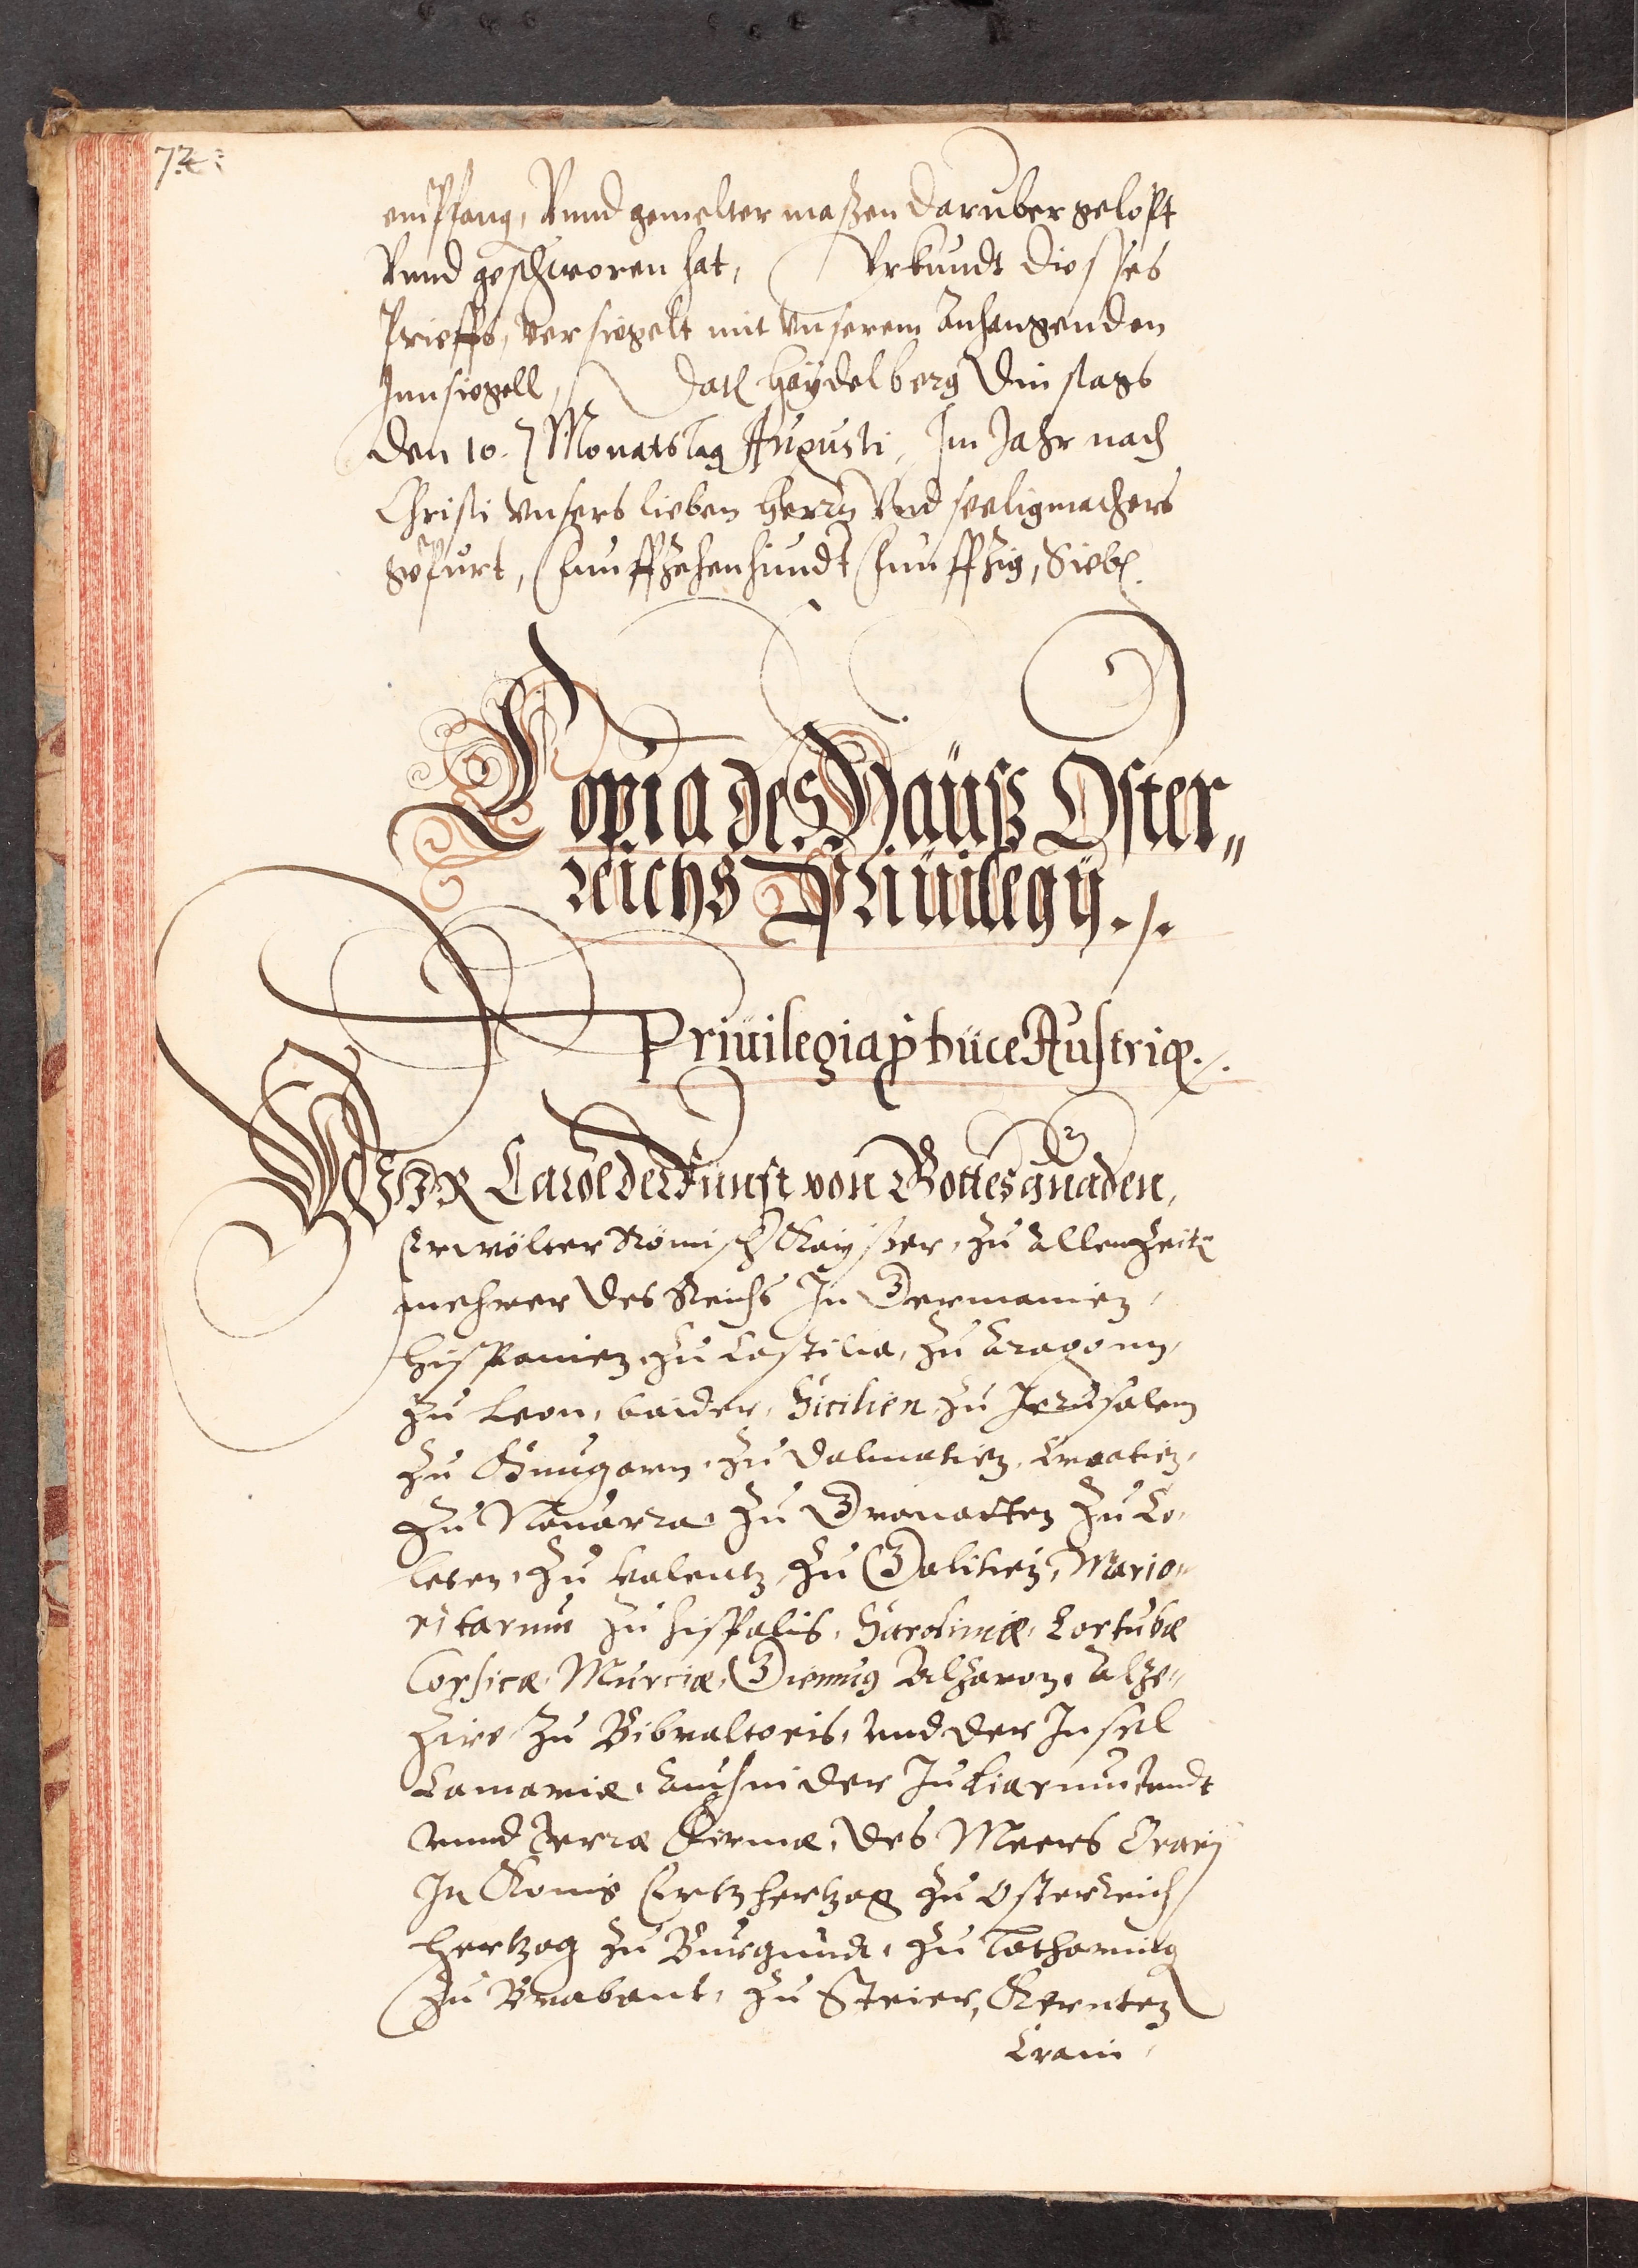 72:
empfang, Vnnd gemelter maßen daruber gelopt
Vnnd geschworen hat, Vrkundt diesses
Prieffs, versiegelt mit vnserem anhangenden
Innsiegell, Dat haÿdelberg Dinstags
den 10. Monatstag Augusti, Im Jahr nach
Christi vnsers lieben herrn Vnd seeligmachers
gepurt, funffzehenhundt funffzig, Sieb
Copia des Hauß Oster„
reichs Priuilegÿ ./.
Priuilegia Austriæ ./.
WIR Carol der Funft von Gottes gnaden,
Erwölter Römisch Kaÿßer, zu allen Zeit
mehrer des Reichs In Germanien,
hispanien, zu Castilia, zu Aragonn,
zu Leon, baider, Sicilien, zu Jerusalem
zu Hungarn, zu Dalmatien, Croatien,
zu Nauarra, zu Granatten zu To,
leten, zu Valentz, zu Galitien, Mario„
ritarum zu hispalis, Sardiniæ, Cortubæ
Corsicæ, Murciæ, Giennis Algaron, Alge„
zire zu Gibraltoris, vnd der Insel
Canariæ, der Indiarum
vnnd terræ firmæ, des Meers Ocean
In Konig Ertzhertzog zu Osterreich
hertzog zu Burgundi, zu Lotharing
zu Brabant, zu Steier, Kernten
Crain,